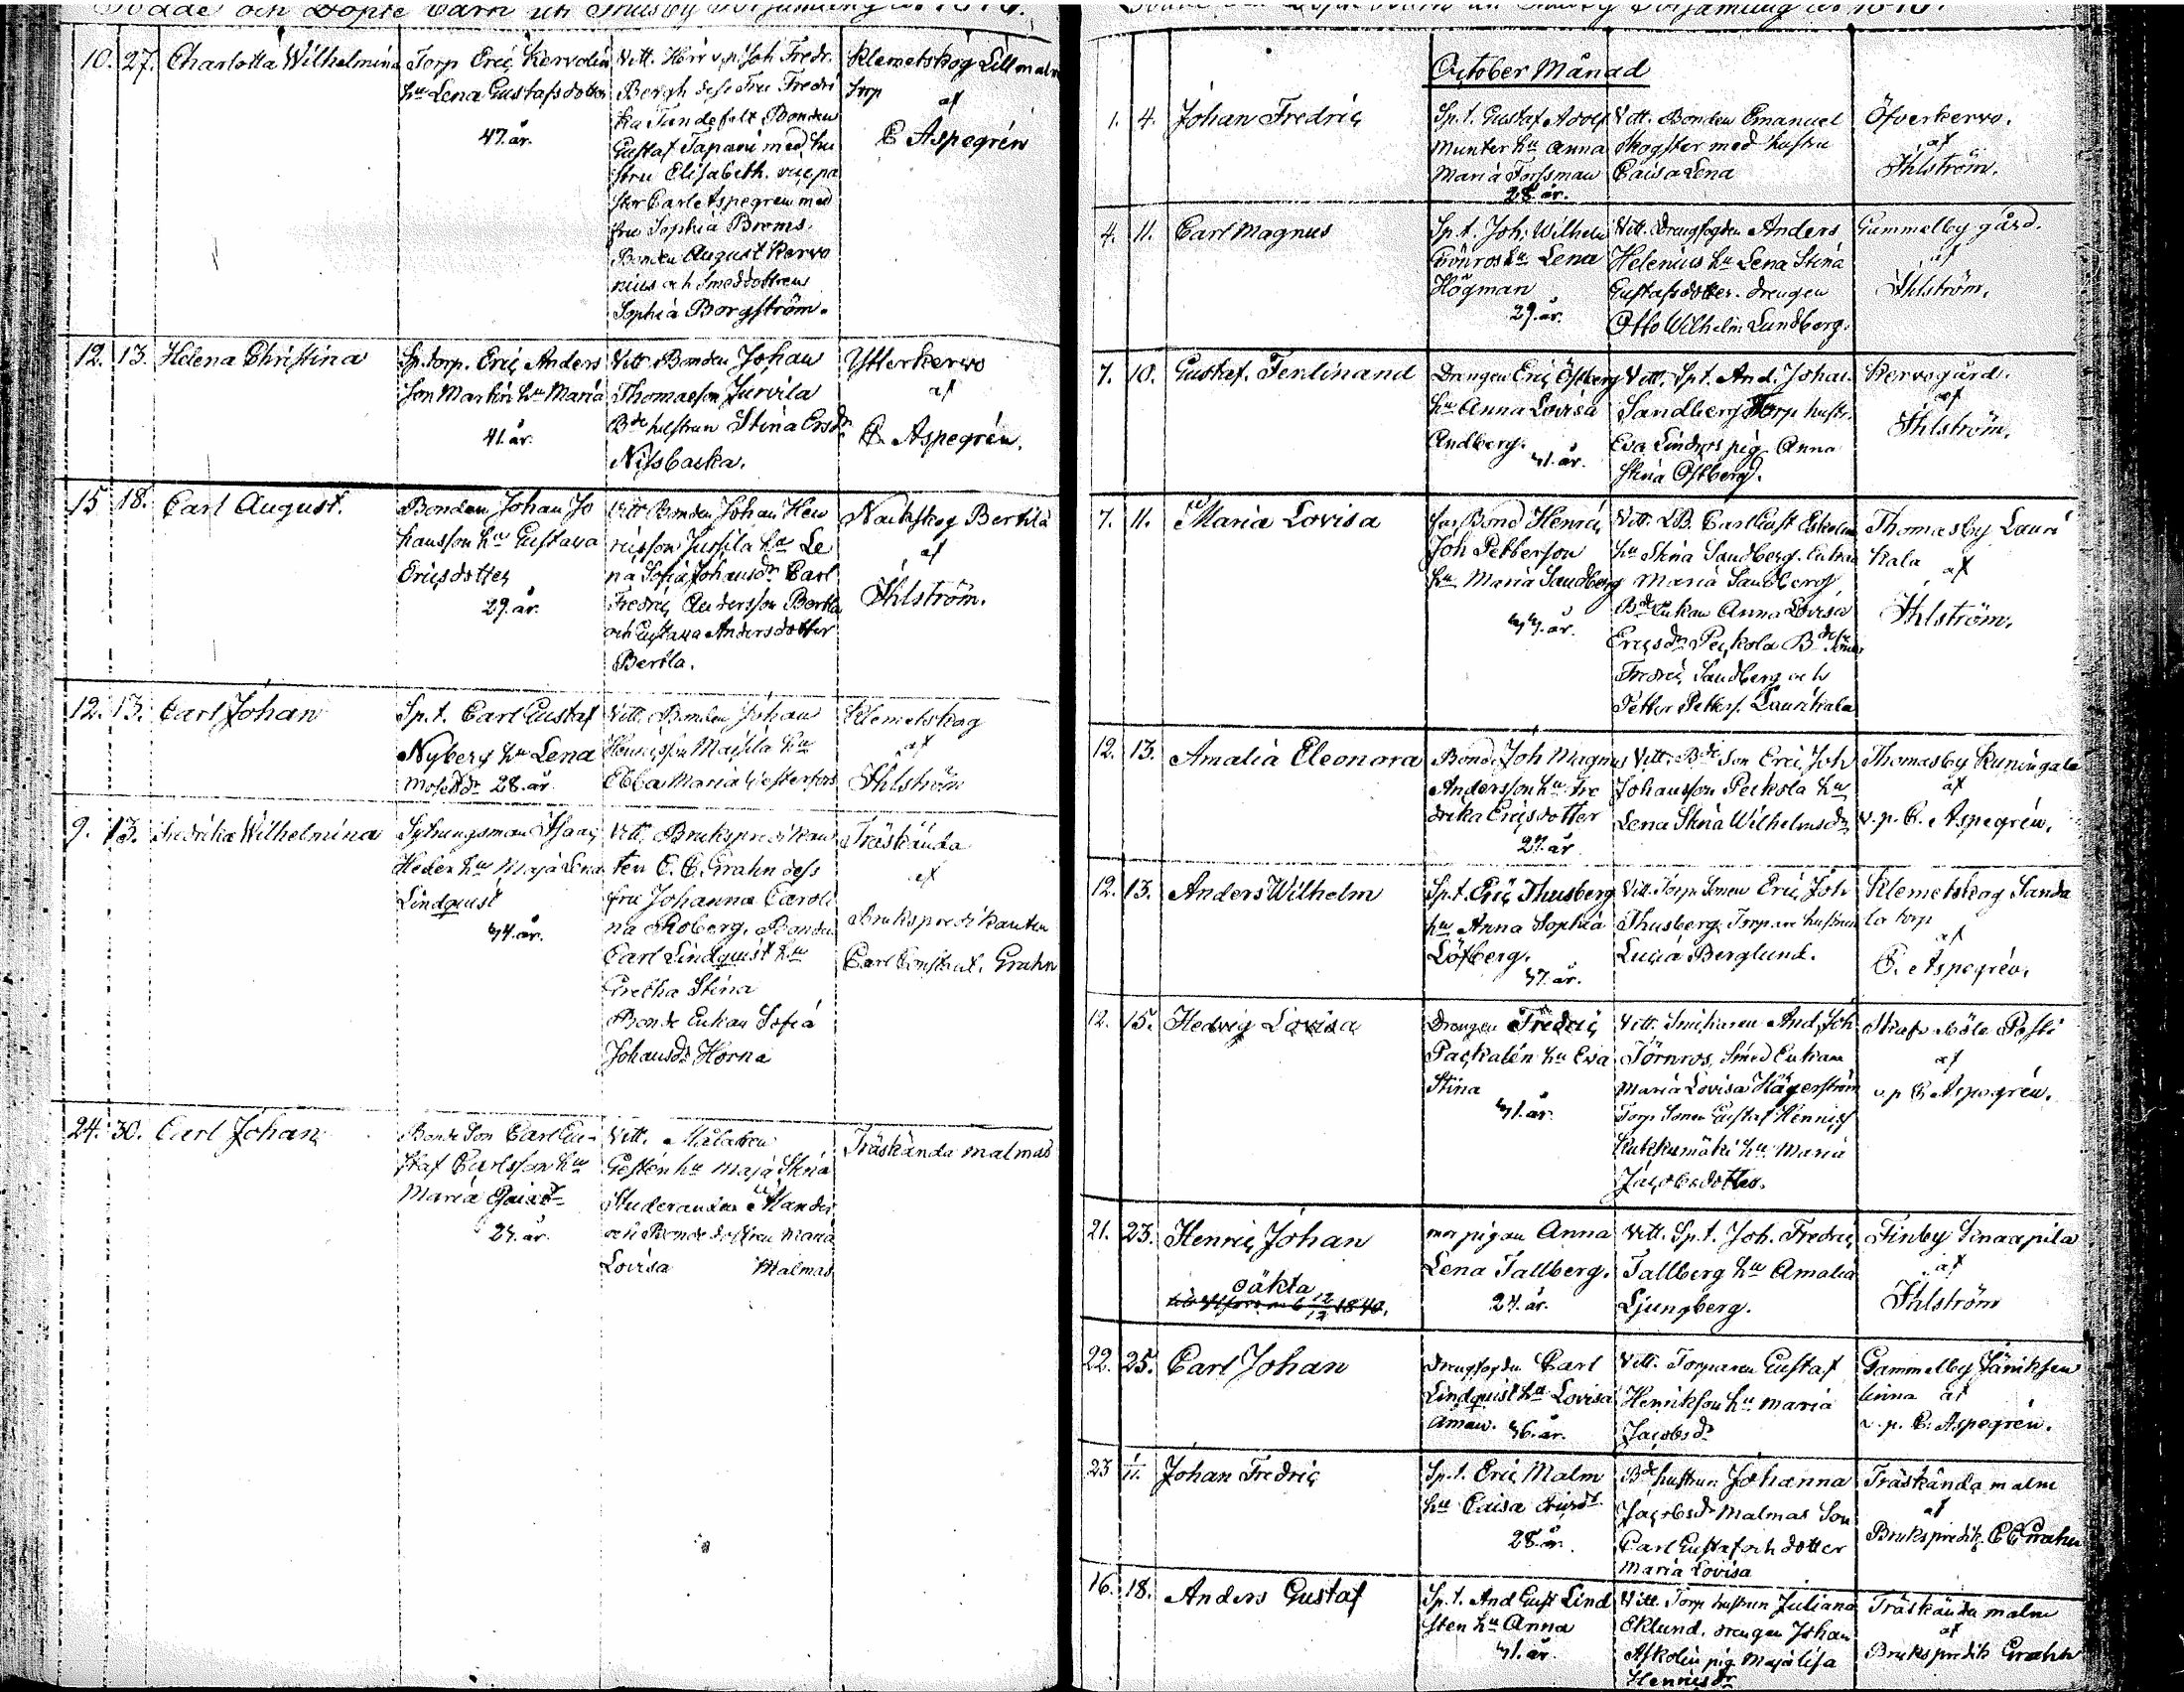 Födde och Döpte Barn uti Thusby Församling år
10. 27. Charlotta Wilhelmina
Torp Eric Kervolin
hu Lena Gustafsdotter
47. år.
Vitt. Herr v.p. Joh Fredr.
Bergh dess Fru Fredri
ka Tandefelt Bonden
Gustaf Tapani med hu
stru Elisabeth. vice pa
stor Carl Aspegren med
fru Sophia Brems.
Bonden August Kervo
nius och Smeddottren
Sophia Borgström.
Klemetskog Lillmalm
torp
af
C Aspegrén
12. 13. Helena Christina
Sp. torp. Eric Anders
son Martin hu Maria
41. år.
Vitt Bonden Johan
Thomasson Jurvila
Bde hustrun Stina Ersdr
Nissbacka.
Ytterkervo
af
C. Aspegrén.
15 18. Carl August.
Bonden Johan Jo
hansson hu Gustava
Ericsdotter
29. år.
Vitt Bonden Johan Hen
ricsson Jussila hu Le
na Sofia Johansdr Carl
Fredric Andersson Bertla
och Gustava Andersdotter
Bertla.
Nackskog Bertila
af
Ihlström.
12. 13. Carl Johan
Sp. t. Carl Gustaf
Nyberg hu Lena
28. år
Vitt. Bonden Johan
Henricsson Maisila hu
Ebba Maria Westerfors
Klemetskog
af
Ihlström
9. 13. Fredrika Wilhelmina
Sytningsman Isaac
Heder hu Maja Lena
Lindquist
44. år.
Vitt. Brukspredikan
ten C. C. Grahn dess
fru Johanna Caroli
na Roberg. Bonden
Carl Lindquist hu
Gretha Stina
Bonde Enkan Sofia
Johansdr Horna
Träskända
af
Brukspredikanten
Carl Constant. Grahn
24. 30. Carl Johan
Bonde Son Carl Gu-
staf Carlsson hu
Maria
24. år.
Vitt. Målaren
Gestén hu Maja Stina
Studeranden Mander
och Bonde dottren Maria
Lovisa Malmas
Träskända malmas
October Månad
1. 4. Johan Fredric
Sp. t. Gustaf Adolf
Munter hu Anna
Maria Forssman
28. år.
Vitt. Bonden Emanuel
Skogster med hustru
Caisa Lena
Öfverkervo.
af
Ihlström.
4. 11. Carl Magnus
Sp. t. Joh. Wilhelm
Lönros hu Lena
Högman
29. år.
Vitt. Drengfogden Anders
Helenius hu Lena Stina
Gustafsdotter. drengen
Otto Wilhelm Lundberg.
Gammelby gård.
af
Ihlström.
7. 10. Gustaf. Ferdinand
Drengen Eric Östberg
hu Anna Lovisa
Andberg.
41. år.
Vitt. Sp. t. And. Johan
Sandberg Torp hustr.
Eva Lindros pig. Anna
Stina Östberg.
Kervogård.
af
Ihlström.
7. 11. Maria Lovisa
Bond Henric
Joh Petterson
hu Maria Sandberg
44. år.
Vitt. LB. Carl Gust Eskolin
hu Stina Sandberg. Enkan
Maria Sandberg
Bde Enkan Anna Lovisa
Ericsdr Peckola Bde Sönerne
Fredric Sandberg och
Petter Petters. Laurikala
Thomasby Lauri
kala af
Ihlström.
12. 13. Amalia Eleonora
Bond. Joh Magnus
Andersson hu Fre
drika Ericsdotter
27. år
Vitt. Bde Son Eric Joh
Johansson Peckola hu
Lena Stina Wilhelmsdr
Thomasby Kuningala
af
v. p. C. Aspegrén.
12. 13. Anders Wilhelm
Sp. t. Eric Thusberg
hu Anna Sophia
Löfberg.
47. år.
Vitt. Torp. Sonen Eric Joh
Thusberg. Torpare hustrun
Lucia Berglund.
Klemetskog Sanda
la torp
af
C. Aspegrén.
12. 15. Hedvig Lovisa
Drengen Fredric
Packalén hu Eva
Stina
41. år.
Vitt. Snickaren And. Joh
Törnros, Smed Enkan
Maria Lovisa Hägerström
Torp Sonen Gustaf Henriss
Kukkumäki hu Maria
Jacobsdotter.
af
v. p C Aspegrén.
21. 23. Henric Johan
oäkta
mor pigan Anna
Lena Tallberg.
24. år.
Vitt. Sp. t. Joh. Fredric
Tallberg hu Amalia
Ljungberg.
Finby Sinaapila
af
Ihlström
22. 25. Carl Johan
Drengfogden Carl
Lindquist hu Lovisa
Åman. 46. år.
Vitt. Torparen Gustaf
Henrikson hu Maria
Jacobsdr
Gammelby Jäniksen
linna af
v. p. C. Aspegrén.
23 1/11. Johan Fredric
Sp. t. Eric Malm
hu Caisa
28. år.
Bde hustrun Johanna
Jacobsdr Malmas Son
Carl Gustaf och dotter
Maria Lovisa
Träskända malm
af
Brukspredik. C C Grahn
16. 18. Anders Gustaf
Sp. t. And Gust Lind
sten hu Anna
41. år.
Vitt. Torp hustrun Juliana
Eklund. drengen Johan
Askolin pig Maja Lisa
Henricsdr
Träskända malm
af
Brukspredik Grahn